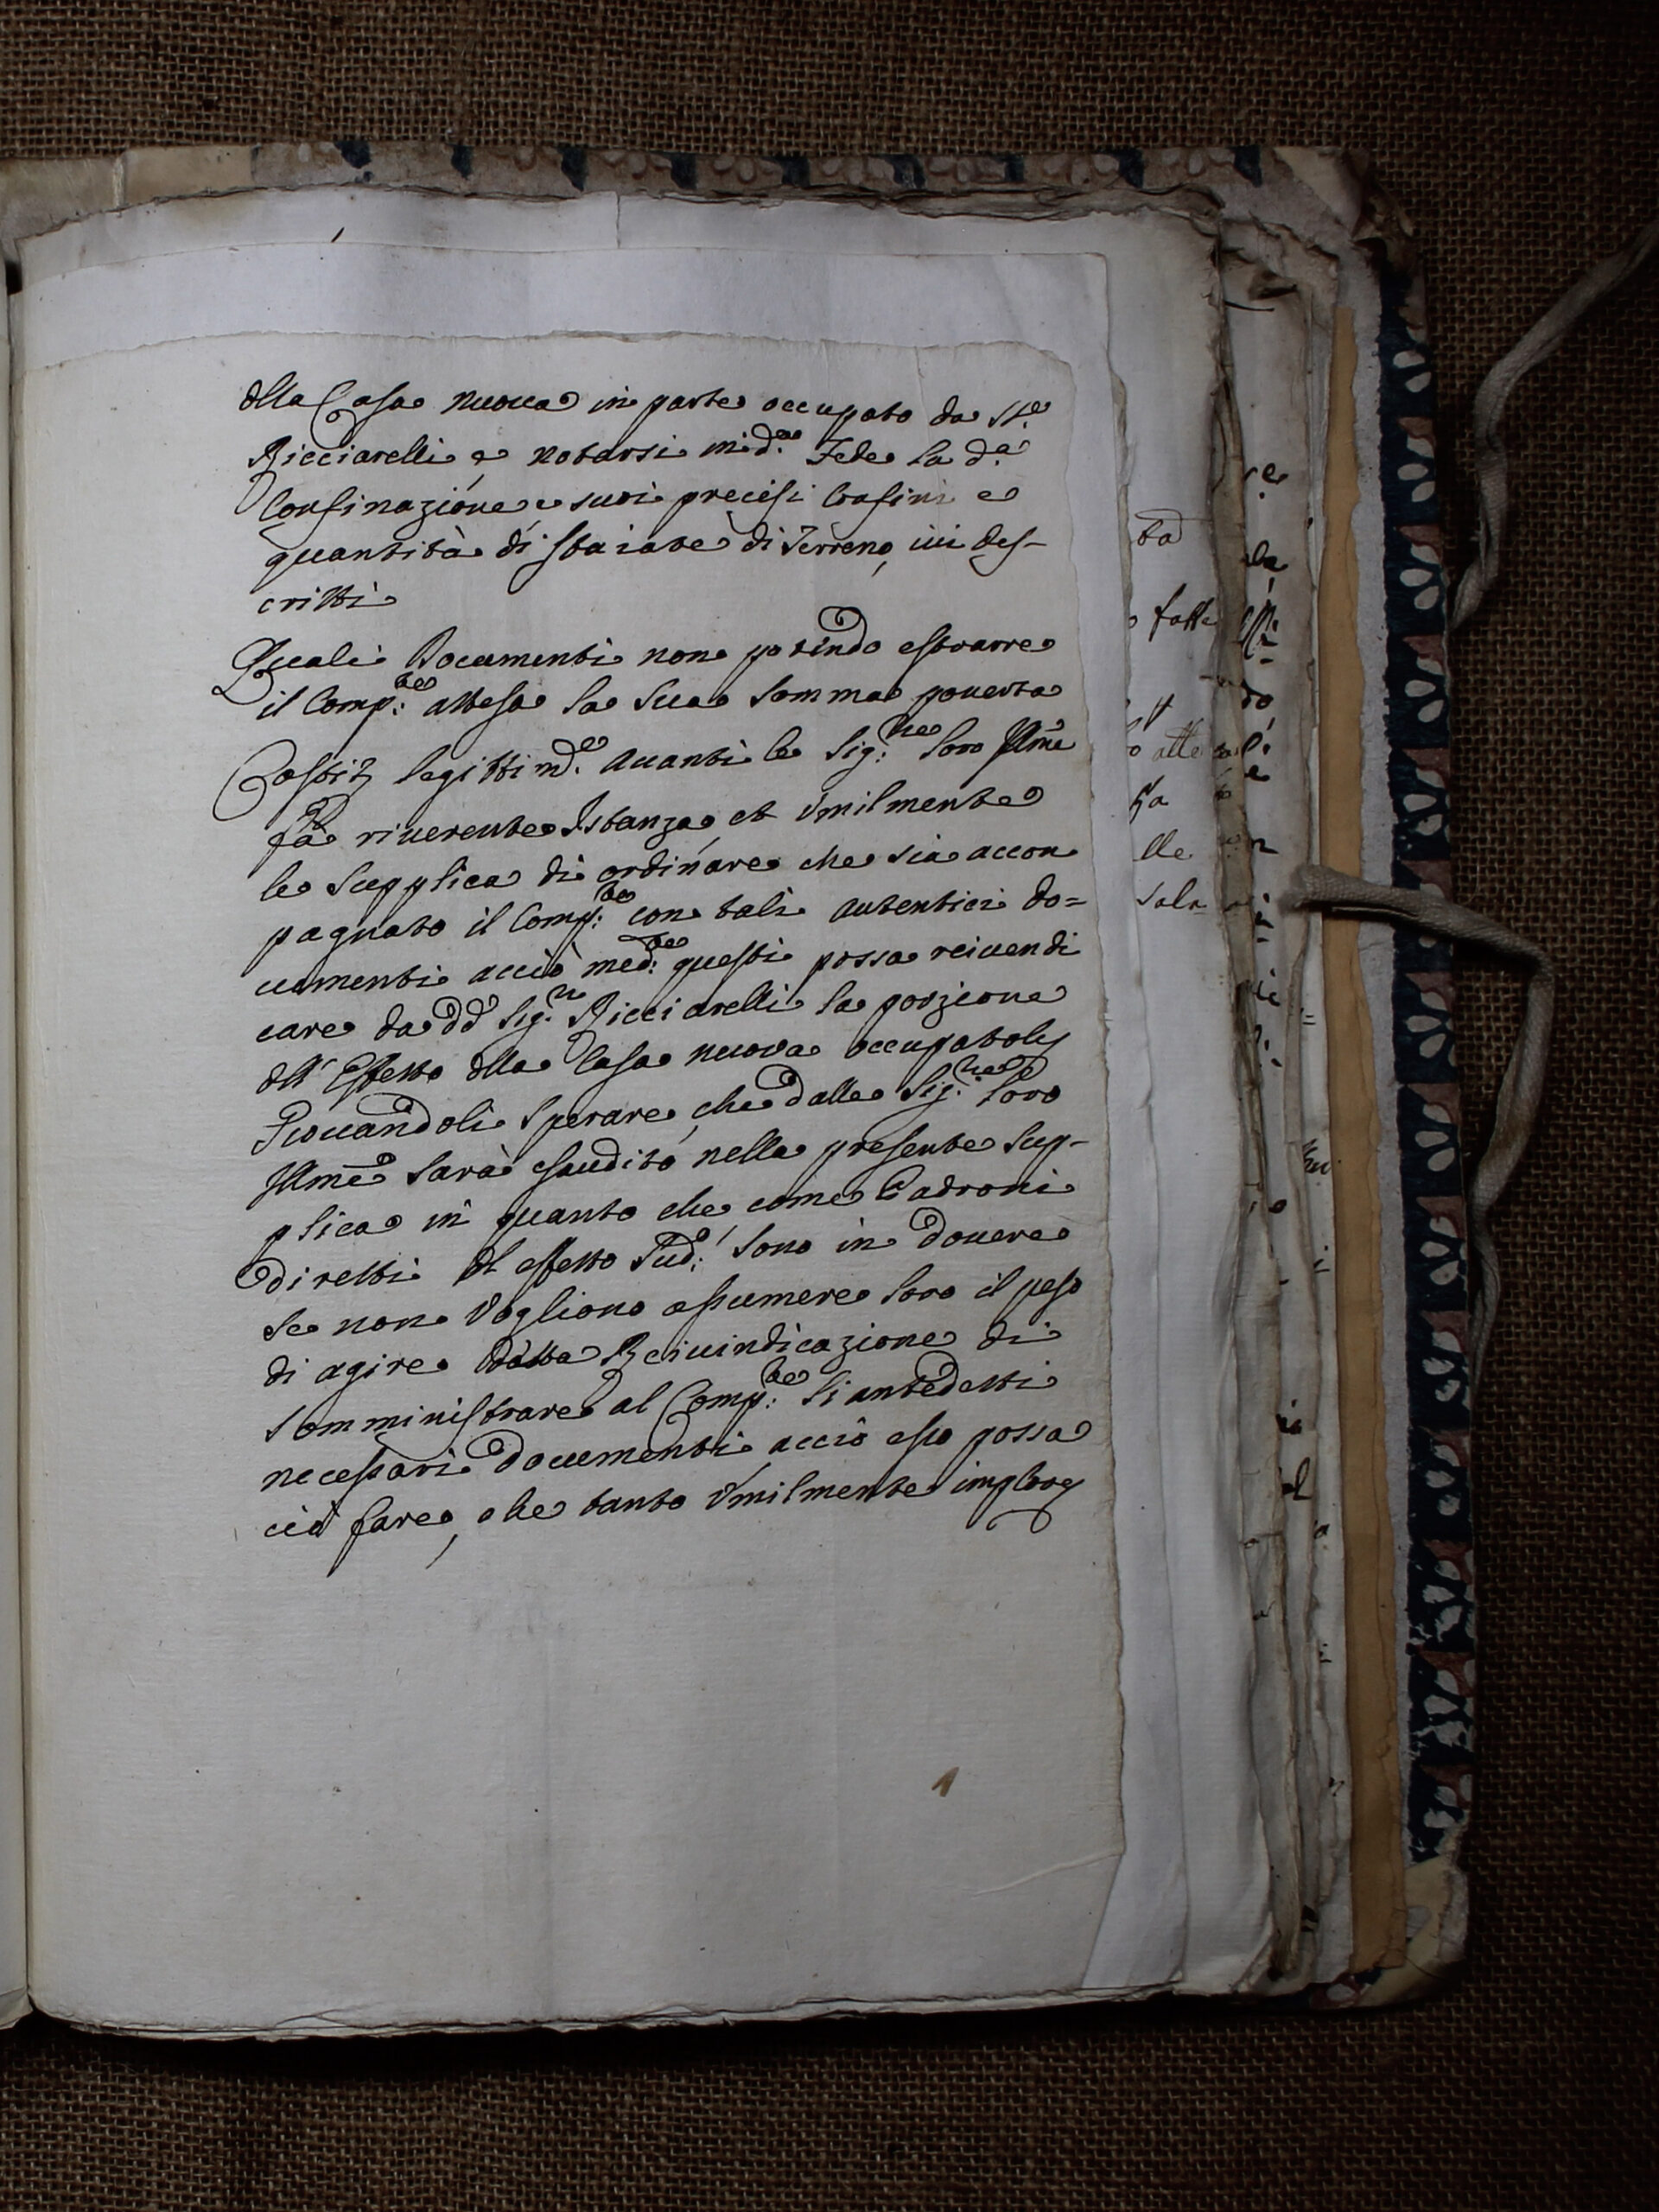 dlla Casa nuova in parte occupato da Sr.e
Ricciarelli, e notarsi in d.a Fede la d.a
Confinazione, e suoi precisi Confini e
quantità di staiate di Terreno, ivi des-
critti
Quali Documenti non potendo estrarre
il Comp:te attesa la sua somma poverta
Costit legittimd.e avanti le Sig:rie loro Ill̃me
fà riverente Istanza, et Umilmente
le Supplica di ordinare che sia accom
pagnato il Comp:te con tali autentici do=
cumenti acciò med:te questi possa reivendi
care da dd Sig.ri Ricciarelli la porzione
dll' Effetto dlla Casa nuova occupatoly
Giovandoli Sperare, che dalle Sig:rie Loro
Ill̃me Sarà esaudito nella presente Sup-
plica in quanto che come Padroni
diretti dl effetto Sud:o Sono in dovere
Se non Vogliono assumere loro il peso
di agire Reivindicazione di
Somministrare al Comp:te li antedetti
necessari Documenti, acciò esso possa
ciò fare, che tanto Umilmente
1
ta
fatte
alle
lle